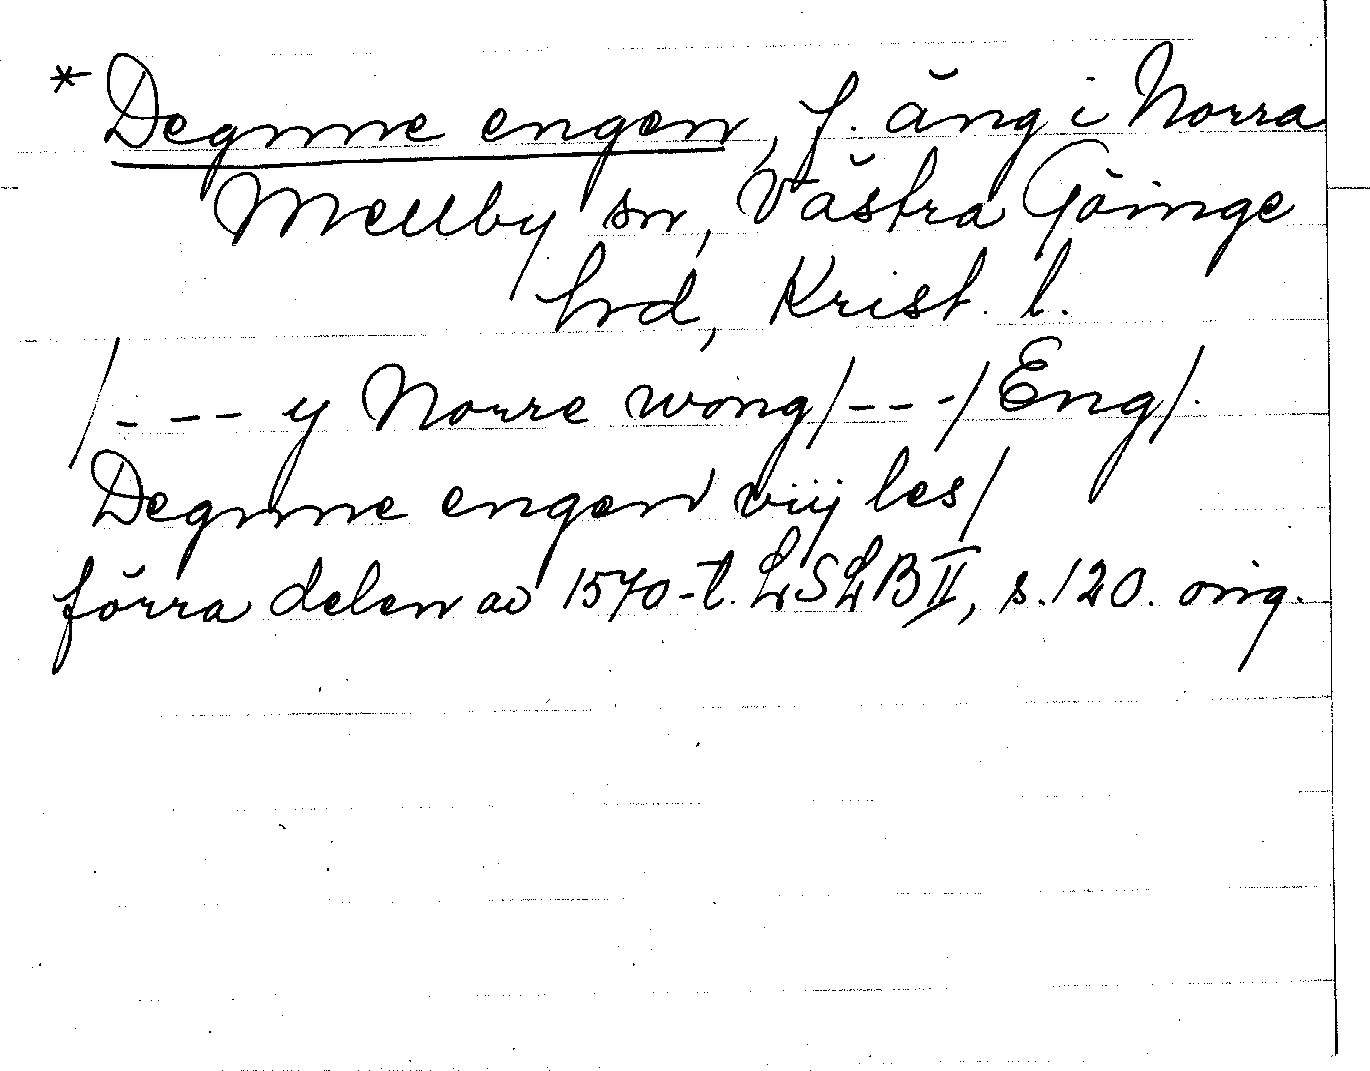 * Degnne engen, f. äng i Norra
Mellby sn, Västra Göinge
hrd, Krist. l.
/--- y Norre wong/---/Eng/.
Degnne engen viij les/
förra delen av 1570-t. LSLB II, s. 120. orig.